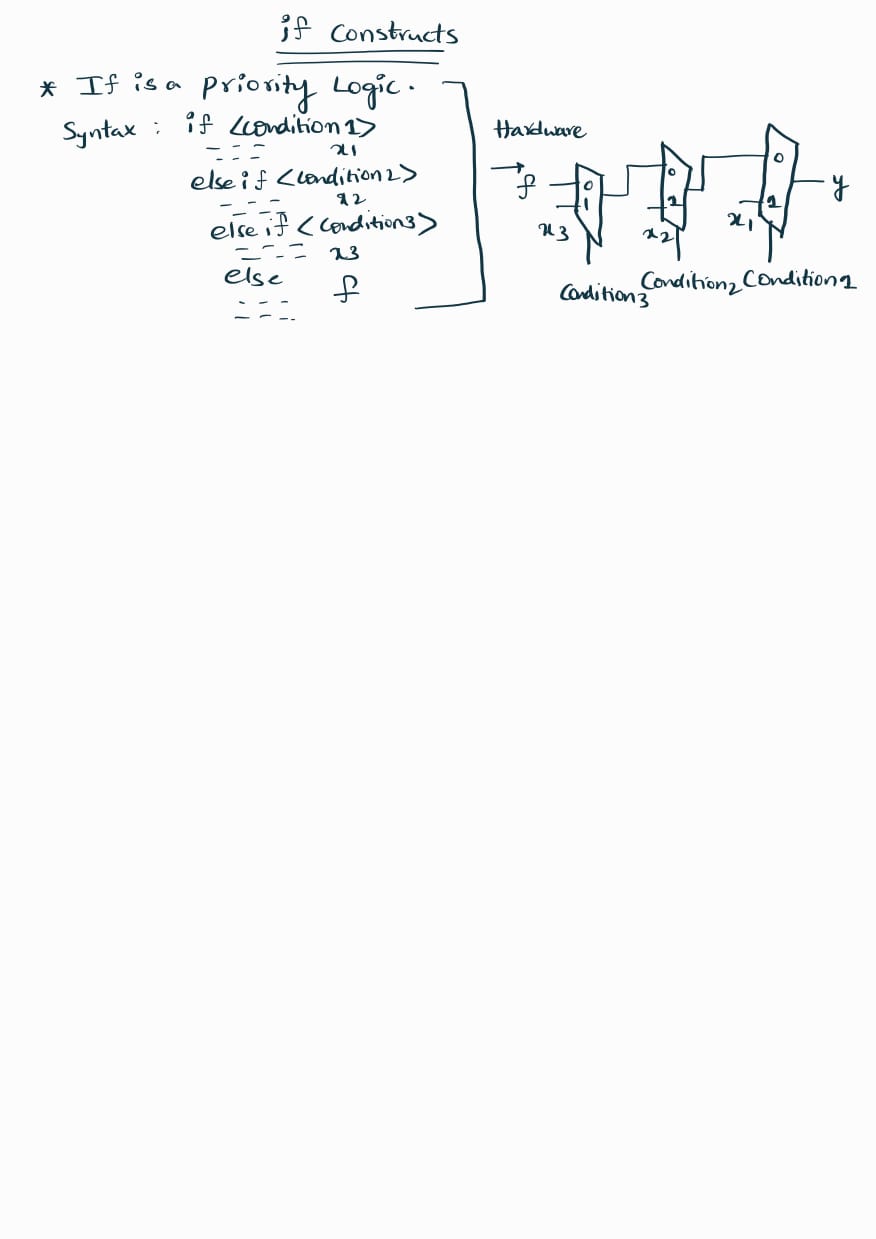 if Constructs
* If is a Priority Logic.
Syntax : if <condition 1>
x1
else if <condition 2>
x2
else if <condition3>
x3
else
f
Hardware
f
0
1
x3
Condition3
0
1
x2
Condition2
0
1
x1
Condition1
y